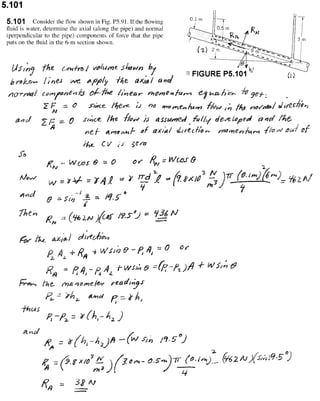 5.101
5.101 Consider the flow shown in Fig. P5.91. If the flowing
fluid is water, determine the axial (along the pipe) and normal
(perpendicular to the pipe) components of force that the pipe
puts on the fluid in the 6-m section shown.
0.1 m
0.5 m
3 m
R_N
R_A
(2)
2 m
6 m
W
(1)
FIGURE P5.101
Using the control volume shown by
broken lines we apply the axial and
normal components of the linear momentum equation to get:
ΣF_N = 0 since there is no momentum flow in the normal direction
and ΣF_A = 0 since the flow is assumed fully developed and the
net amount of axial direction momentum flow out of
the CV is zero
So
R_N - W cos θ = 0 or R_N = W cos θ
Now W = γ V = γ A l = γ πd²/4 l = (9.8×10³ N/m³) π (0.1m)²(6m)/4 = 462 N
and θ = sin⁻¹ 2/6 = 19.5°
Then R_N = (462 N)(cos 19.5°) = 436 N
For the axial direction
P₂A₂ + R_A + W sin θ - P₁A₁ = 0 or
R_A = P₁A₁ - P₂A₂ - W sin θ = (P₁ - P₂)A - W sin θ
From the manometer readings
P₂ = γh₂ and P₁ = γh₁
thus
P₁ - P₂ = γ(h₁ - h₂)
and
R_A = γ(h₁ - h₂)A - (W sin 19.5°)
R_A = (9.8×10³ N/m³)(3.0m - 0.5m) π (0.1m)²/4 - (462 N)(sin 19.5°)
R_A = 38 N